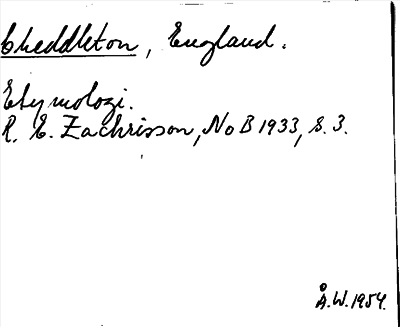 Cheddleton, England.
Etymologi.
R. E. Zachrisson, NoB 1933, s. 3.
Å.W. 1954.